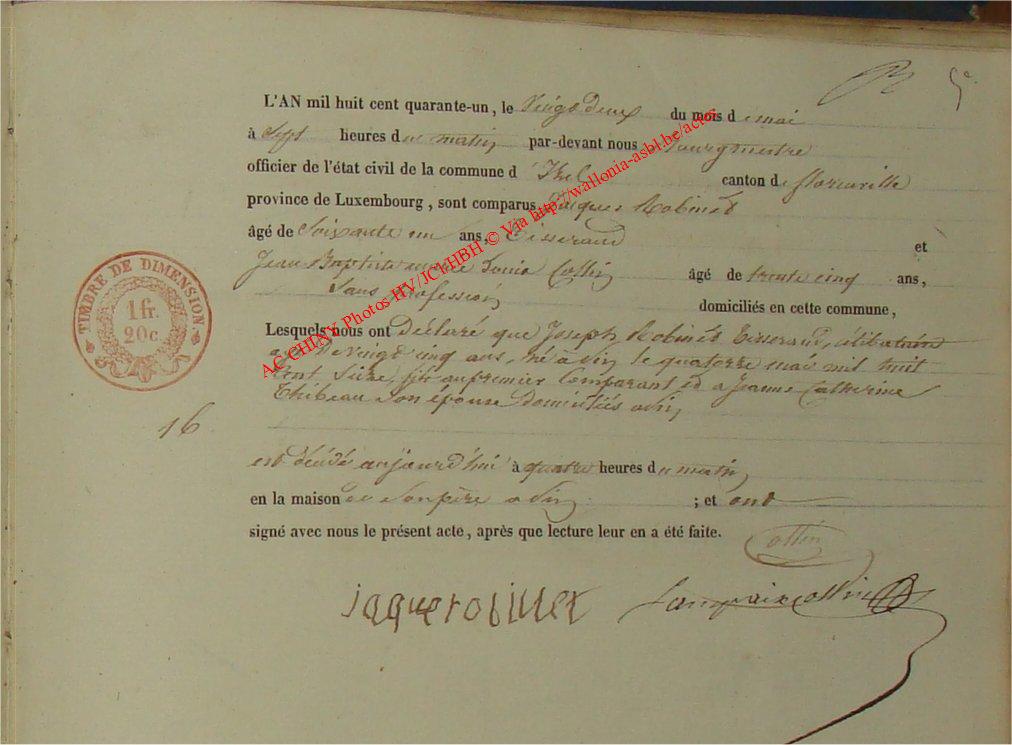 L'AN mil huit cent quarante-un, le Vingt deux du mois de mai
à Sept heures du matin par-devant nous Bourgmestre
officier de l'état civil de la commune d'Izel canton de florenville
province de Luxembourg, sont comparus Jacques Robinet
âgé de Soixante un ans, Tisserand et
Jean Baptiste Louis Collin âgé de trente cinq ans,
Sans profession domiciliés en cette commune,
Lesquels nous ont Déclaré que Joseph Robinet Tisserand, célibataire
agé De vingt cinq ans, né à le quatorze mai mil huit
Cent Seize, fils au premier Comparant et a Jeanne Catherine
Thibeau Son épouse domiciliés
16
est décédé aujourd'hui à quatre heures du matin
en la maison de Son père ; et ont
signé avec nous le présent acte, après que lecture leur en a été faite.
Collin
jaque robinet
Collin
TIMBRE DE DIMENSION
1 fr.
20 c.
AC CHINY Photos HV/JCY-HBH © Via http://wallonia-asbl.be/actes